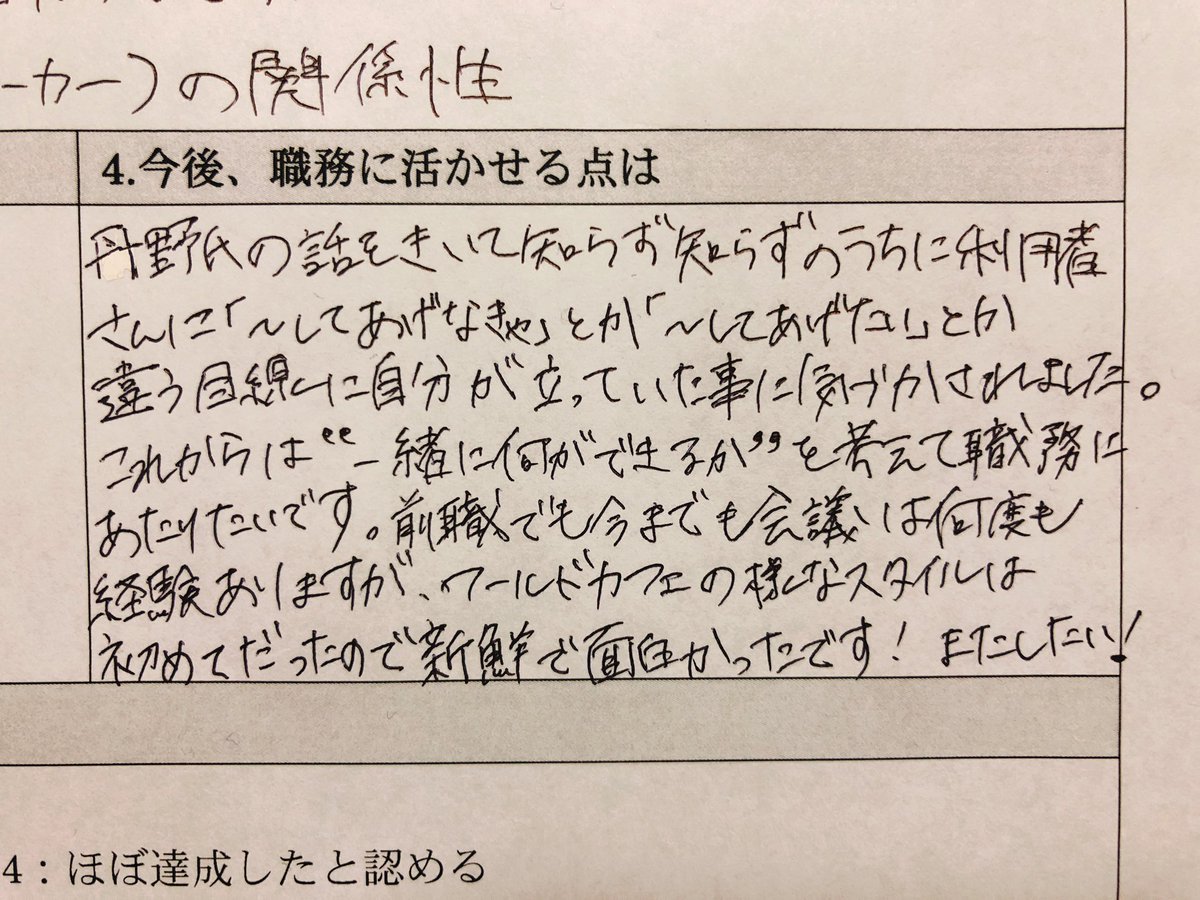 ーカー)の関係性
4.今後、職務に活かせる点は
丹野氏の話をきいて知らず知らずのうちに利用者
さんに「~してあげなきゃ」とか「~してあげたい」とか
違う目線に自分が立っていた事に気づかされました。
これからは“一緒に何ができるか”を考えて職務に
あたりたいです。前職でも今までも会議は何度も
経験ありますが、ワールドカフェの様なスタイルは
初めてだったので新鮮で面白かったです!またしたい!
4:ほぼ達成したと認める